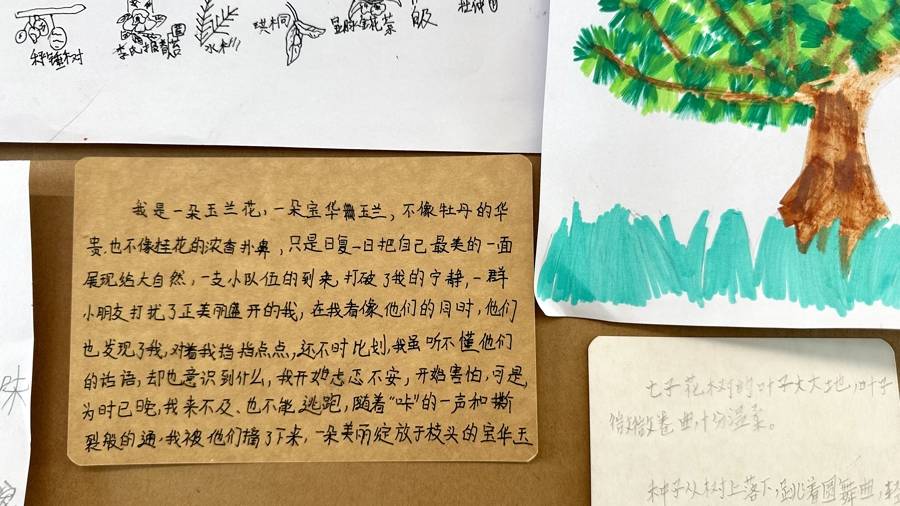 水杉
珙桐
我是一朵玉兰花，一朵宝华玉兰，不像牡丹的华
贵，也不像桂花的浓香扑鼻，只是日复一日把自己最美的一面
展现给大自然，一支小队伍的到来，打破了我的宁静，一群
小朋友打扰了正美丽盛开的我，在我看像他们的同时，他们
也发现了我，对着我指指点点，还不时比划，我虽听不懂他们
的话语，却也意识到什么，我开始忐忑不安，开始害怕，可是
为时已晚，我来不及、也不能逃跑，随着“咔”的一声和撕
裂般的通，我被他们摘了下来，一朵美丽绽放于枝头的宝华玉
七子花树的叶子大大地，叶子
微微卷曲，十分温柔。
种子从树上落下，跳着圆舞曲，轻
味